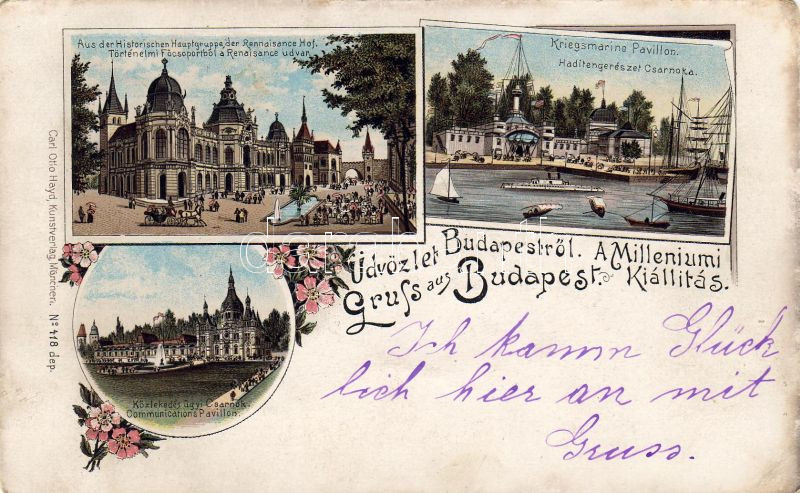 Aus der Historischen Hauptgruppe, der Rennaisance Hof.
Történelmi Főcsoportból a Renaisance udvar.
Kriegsmarine Pavillon.
Haditengerészet Csarnoka.
Carl Otto Hayd, Kunstverlag, München. No 418 dep.
Üdvözlet Budapestről. A Milleniumi
Gruss aus Budapest. Kiállitás.
Közlekedés ügyi Csarnok.
Communications Pavillon.
Ich kamm Glück
lich hier an mit
Gruss.